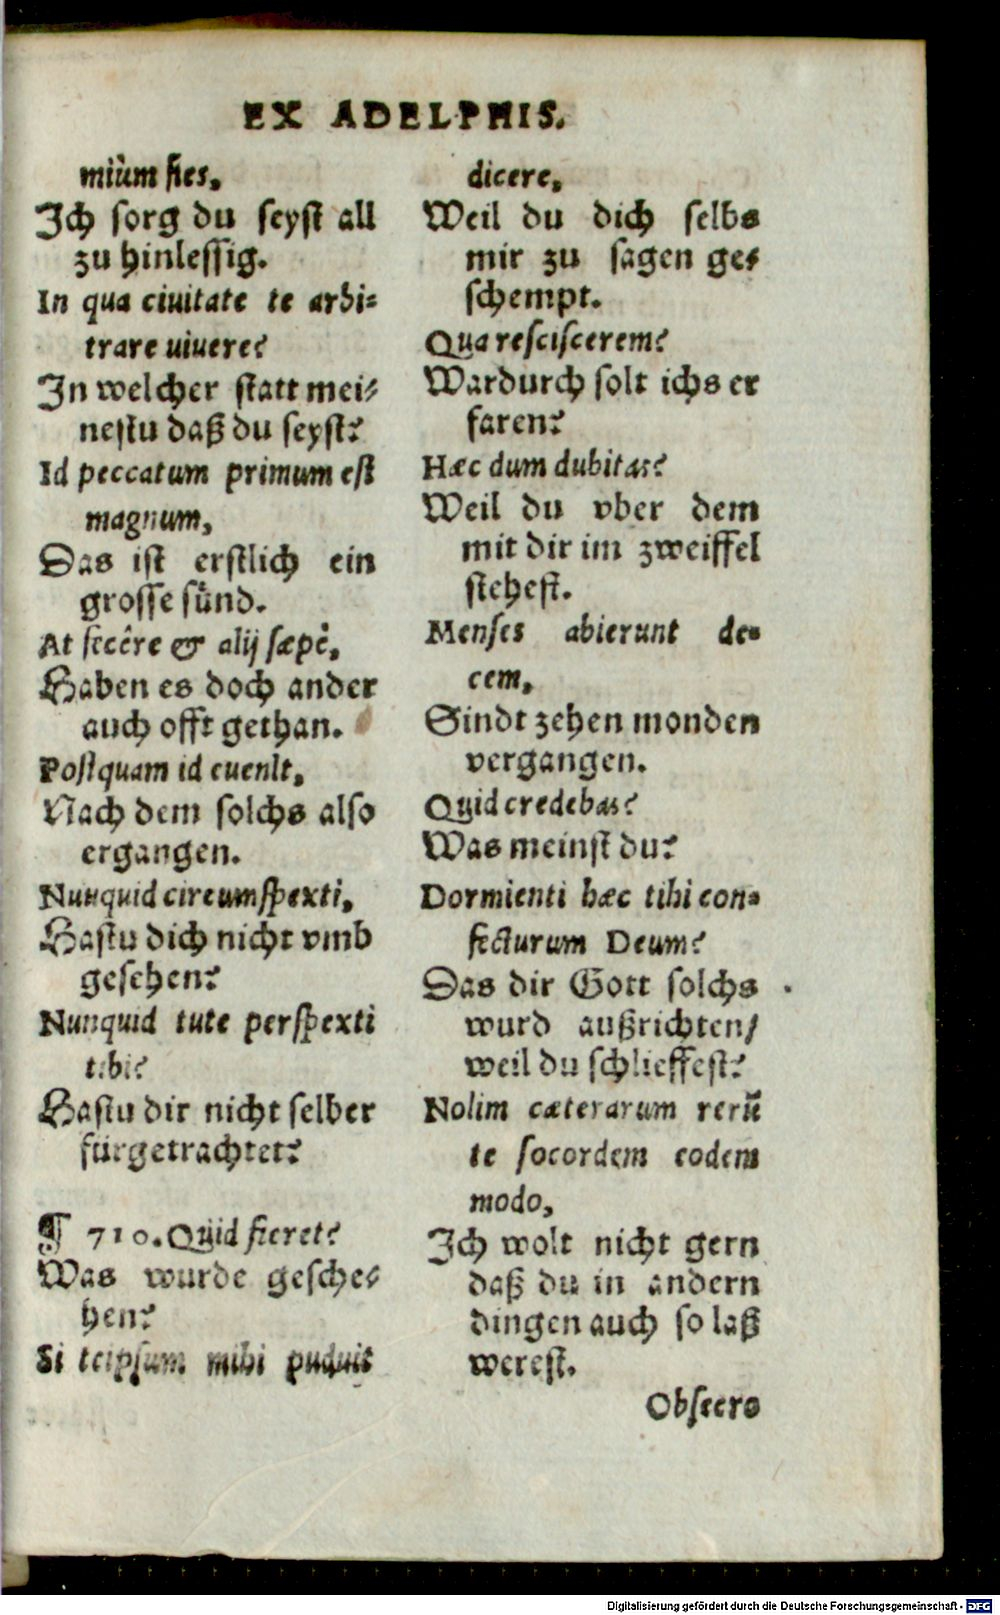 EX ADELPHIS.
miùm fies,
Ich sorg du seyst all
zu hinlessig.
In qua ciuitate te arbi-
trare uiuere?
In welcher statt mei-
nestu daß du seyst?
Id peccatum primum est
magnum,
Das ist erstlich ein
grosse sünd.
At fecêre & alij sæpè,
Haben es doch ander
auch offt gethan.
Postquam id euenIt,
Nach dem solchs also
ergangen.
Nunquid circumspexti,
Hastu dich nicht vmb
gesehen?
Nunquid tute perspexti
tibi?
Hastu dir nicht selber
fürgetrachtet?
¶ 710. Quid fieret?
Was wurde gesche-
hen?
Si teipsum mihi puduit
dicere,
Weil du dich selbs
mir zu sagen ge-
schempt.
Qua rescıscerem?
Wardurch solt ichs er
faren?
Hæc dum dubitas?
Weil du vber dem
mit dir im zweiffel
stehest.
Menses abierunt de-
cem,
Sindt zehen monden
vergangen.
Quid credebas?
Was meinst du?
Dormienti hæc tibi con-
fecturum Deum?
Das dir Gott solchs
wurd außrichten/
weil du schlieffest?
Nolim cæterarum rerū
te socordem eodem
modo,
Ich wolt nicht gern
daß du in andern
dingen auch so laß
werest.
Obsecro
Digitalisierung gefördert durch die Deutsche Forschungsgemeinschaft - DFG